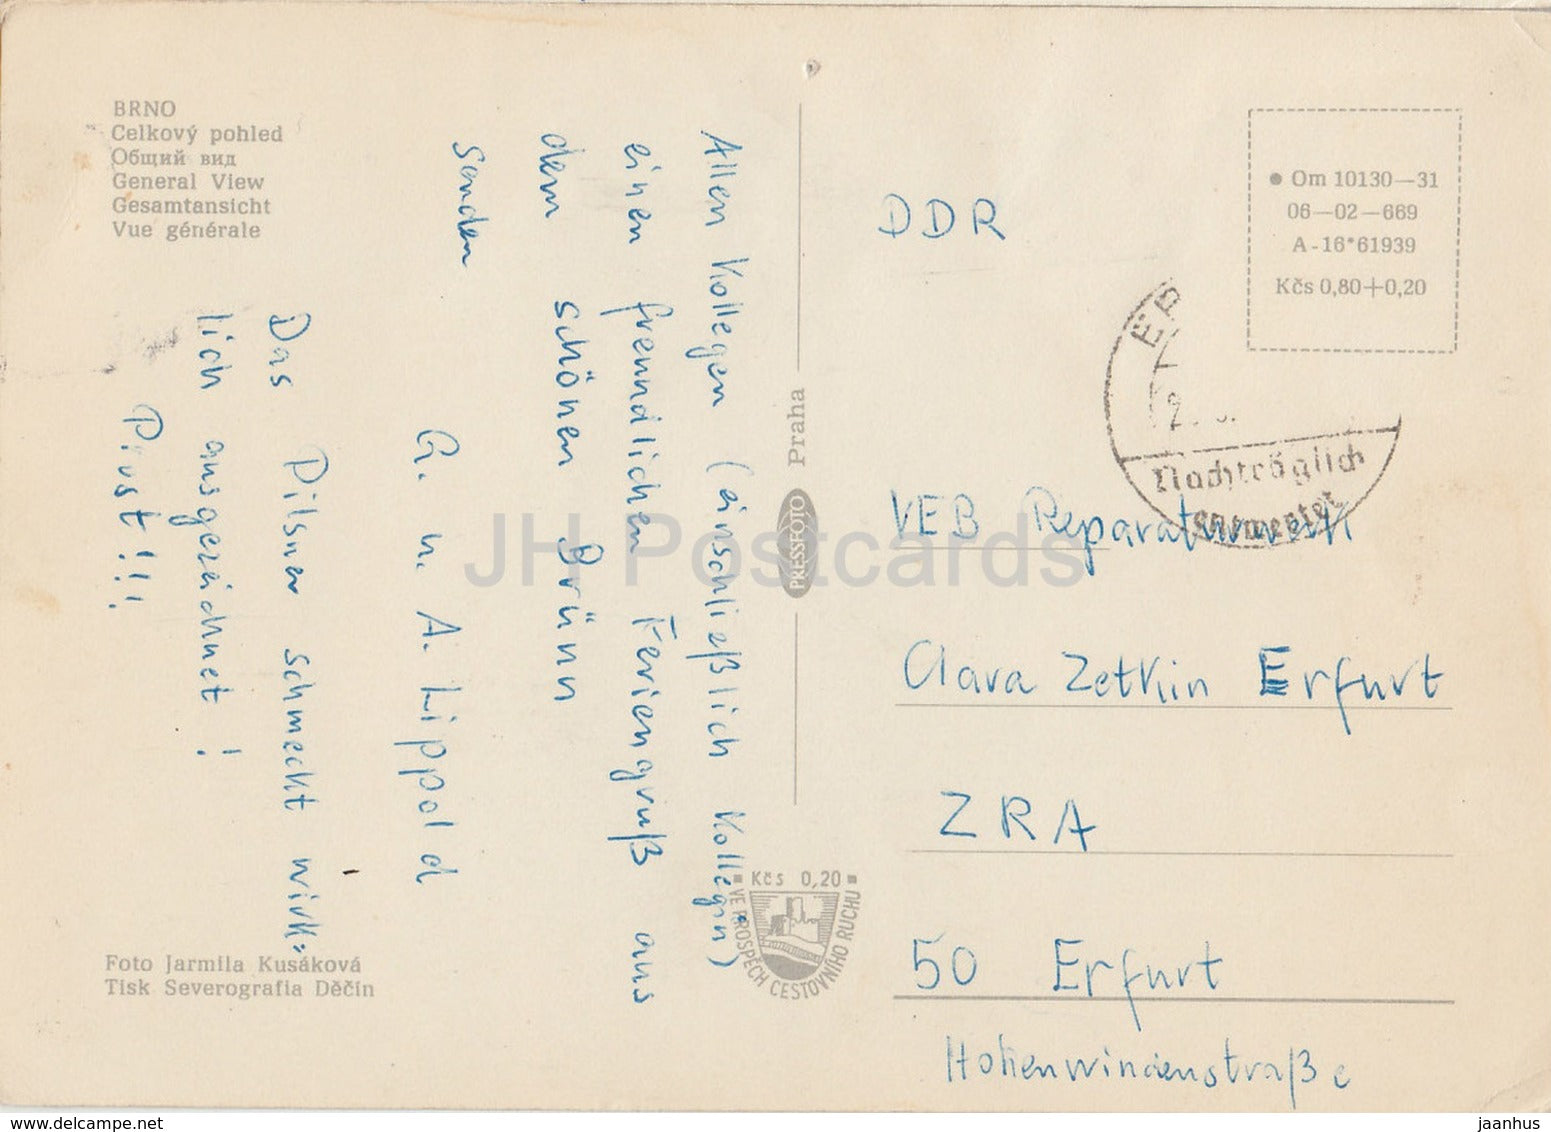 BRNO
Celkový pohled
Общий вид
General View
Gesamtansicht
Vue générale
Allen Kollegen (einschließlich Kollegin)
einen freundlichen Feriengruß aus
dem schönen Brünn
senden
G. u. A. Lippold
Das Pilsner schmeckt wirk=
lich ausgezeichnet!
Prost!!!
Foto Jarmila Kusáková
Tisk Severografia Děčín
Praha
PRESSFOTO
Kčs 0,20
VE PROSPĚCH CESTOVNÍHO RUCHU
Om 10130—31
06—02—669
A-16*61939
Kčs 0,80+0,20
Nachträglich
entwertet
DDR
VEB Reparaturwerk
Clara Zetkin Erfurt
ZRA
50 Erfurt
Hohenwindenstraße
JH Postcards
www.delcampe.net
jaanhus